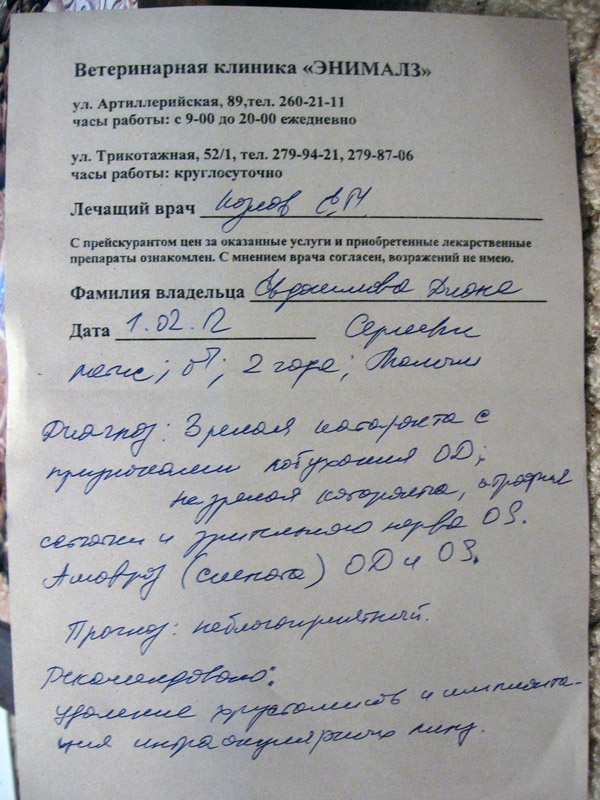 Ветеринарная клиника «ЭНИМАЛЗ»
ул. Артиллерийская, 89,тел. 260-21-11
часы работы: с 9-00 до 20-00 ежедневно
ул. Трикотажная, 52/1, тел. 279-94-21, 279-87-06
часы работы: круглосуточно
Лечащий врач
С прейскурантом цен за оказанные услуги и приобретенные лекарственные
препараты ознакомлен. С мнением врача согласен, возражений не имею.
Фамилия владельца Диана
Дата 1.02.12
2 года;
Диагноз: Зрелая катаракта с
признаками набухания OD;
незрелая катаракта, атрофия
сетчатки и зрительного нерва OS.
Амавроз (слепота) OD и OS.
Прогноз: неблагоприятный.
Рекомендовано:
удаление хрусталиков и импланта-
ция интраокулярных линз.